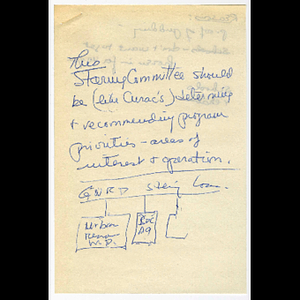 This
Steering Committee should
be (like Curac's) determining
& recommending program
priorities – areas of
interest & operation.
GNRP Steering Com.
Urban
Renew
W.P.
Roc
Ag